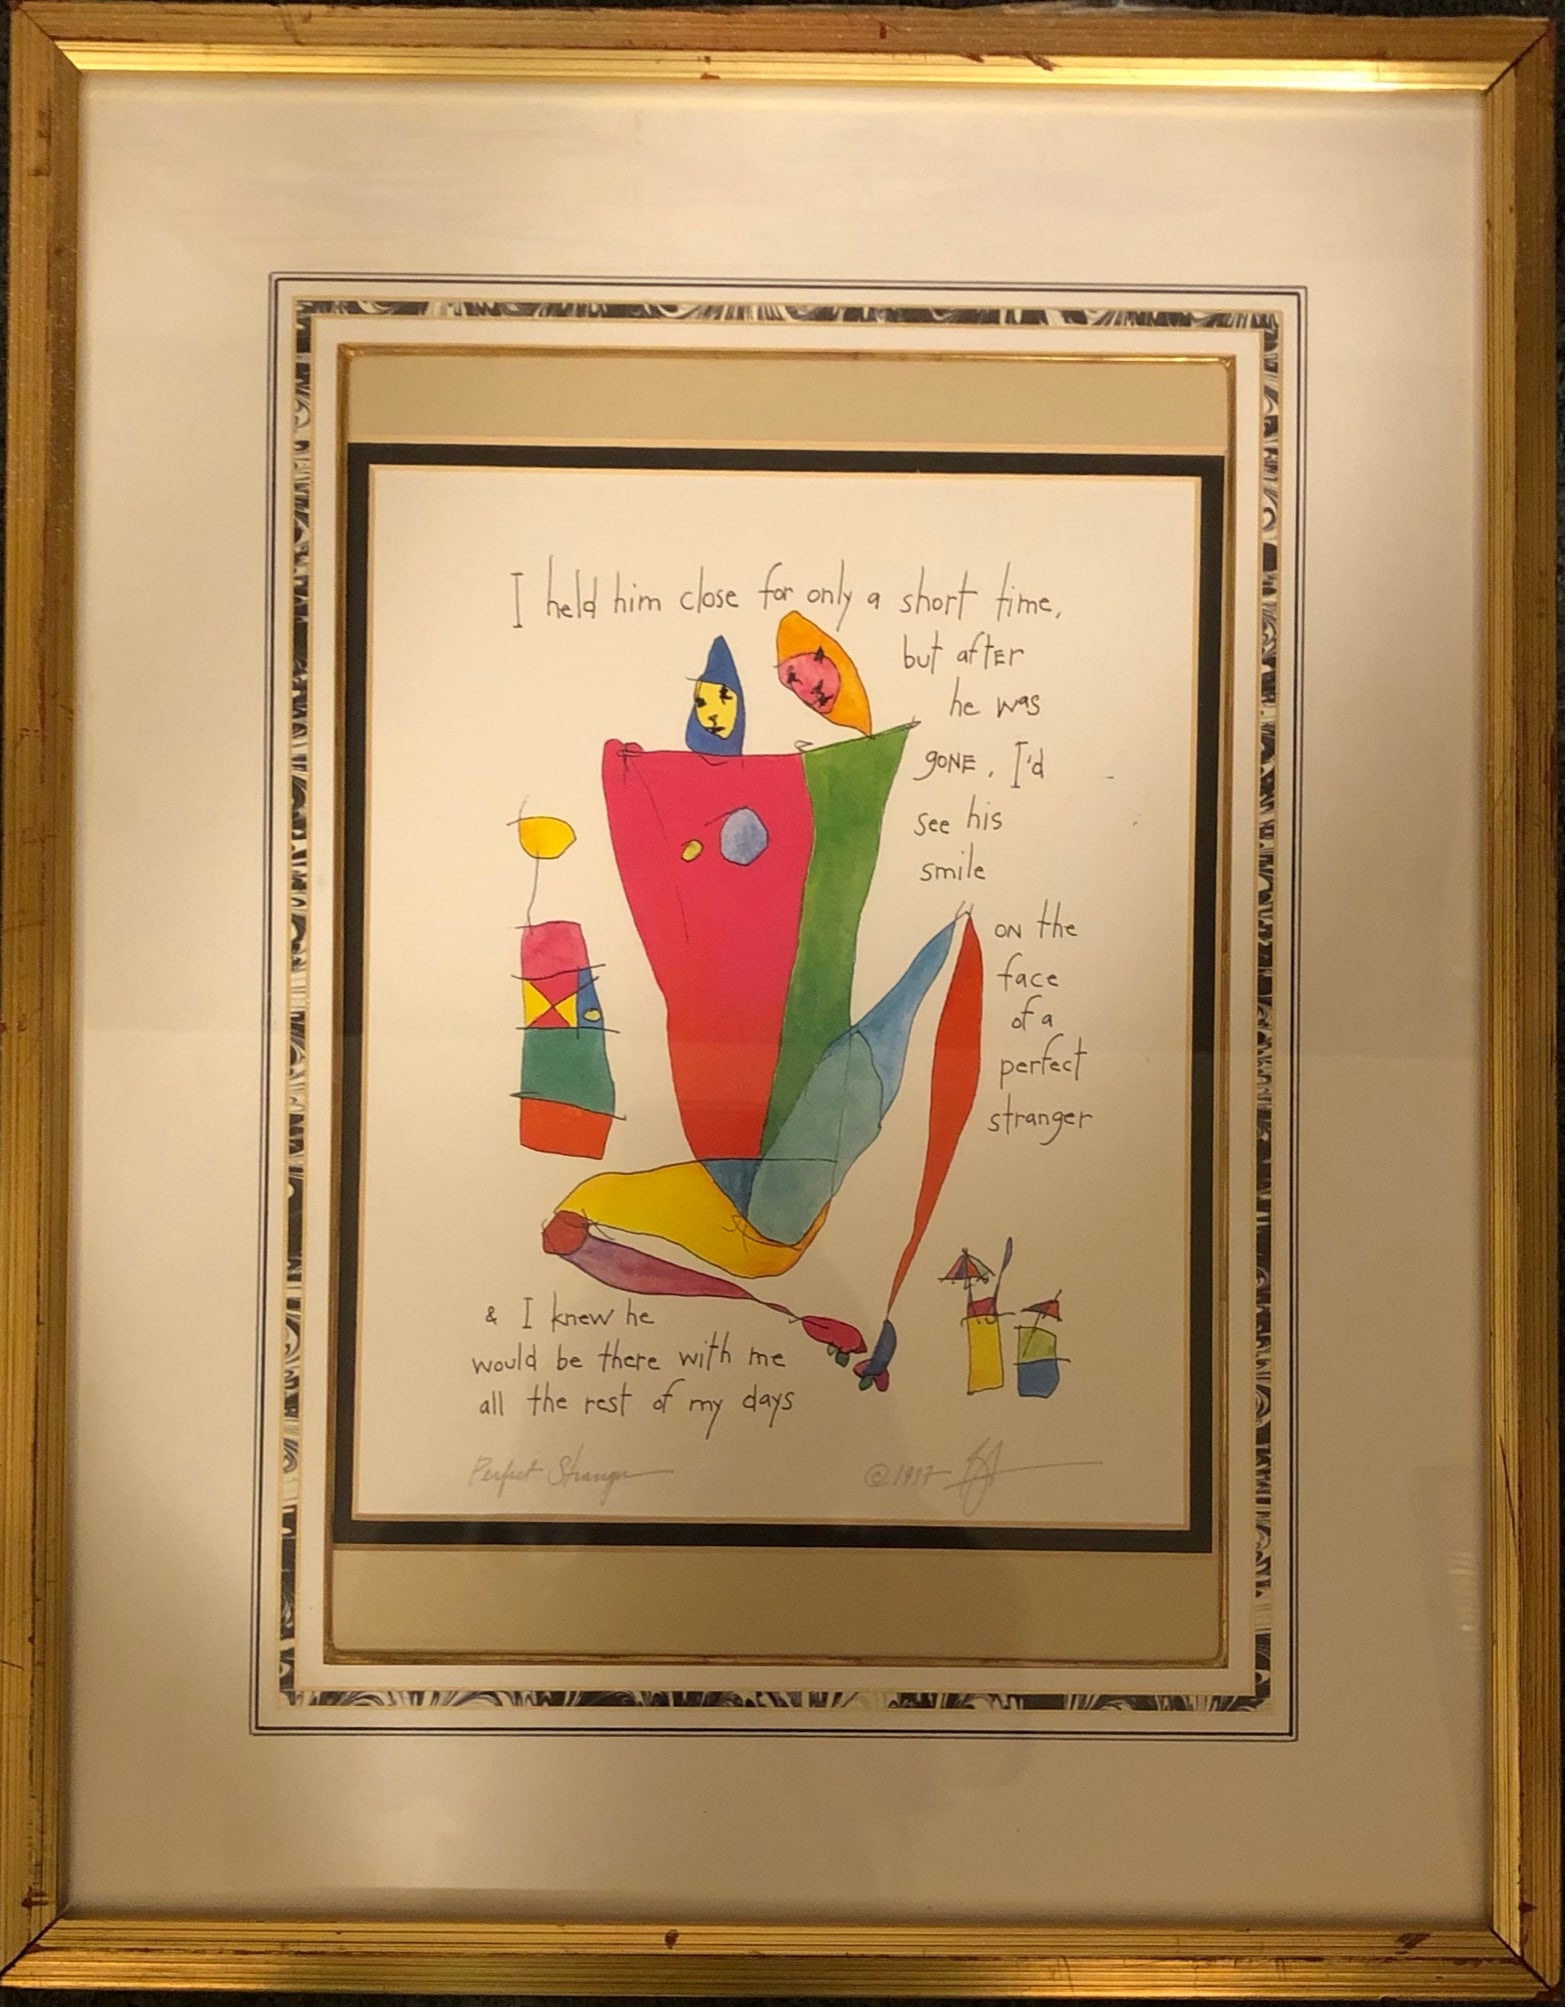 I held him close for only a short time,
but after
he was
gone, I'd
see his
smile
on the
face
of a
perfect
stranger
& I knew he
would be there with me
all the rest of my days
Perfect Stranger
©1997